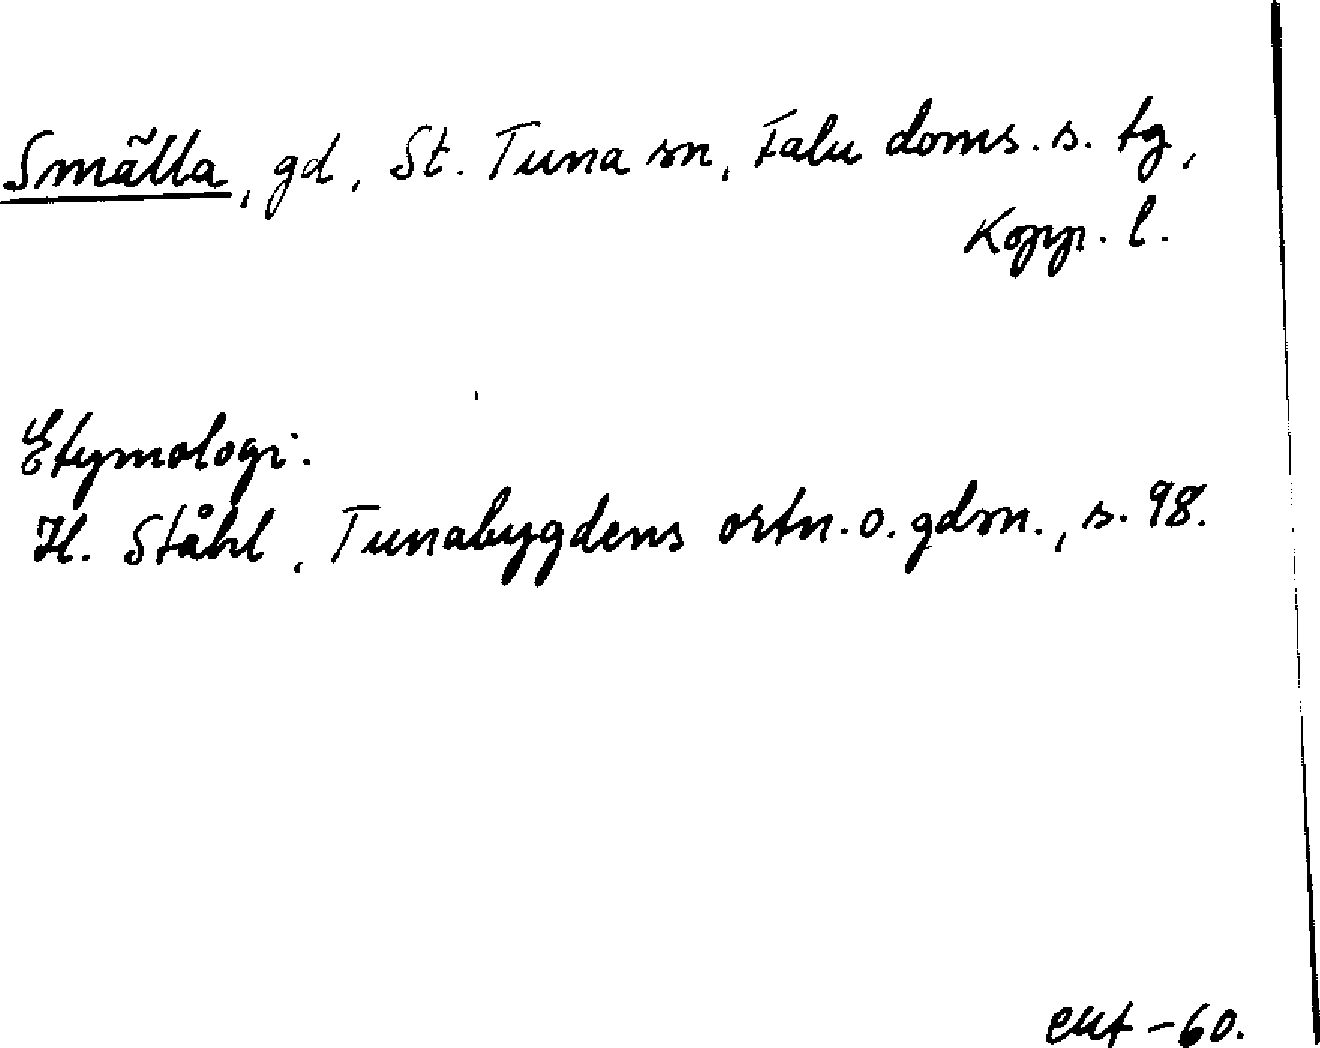 Smälla, gd, St. Tuna sn, Falu doms. s. tg,
Kopp. l.
Etymologi.
H. Ståhl, Tunabygdens ortn. o. gdsn., s. 98.
-60.